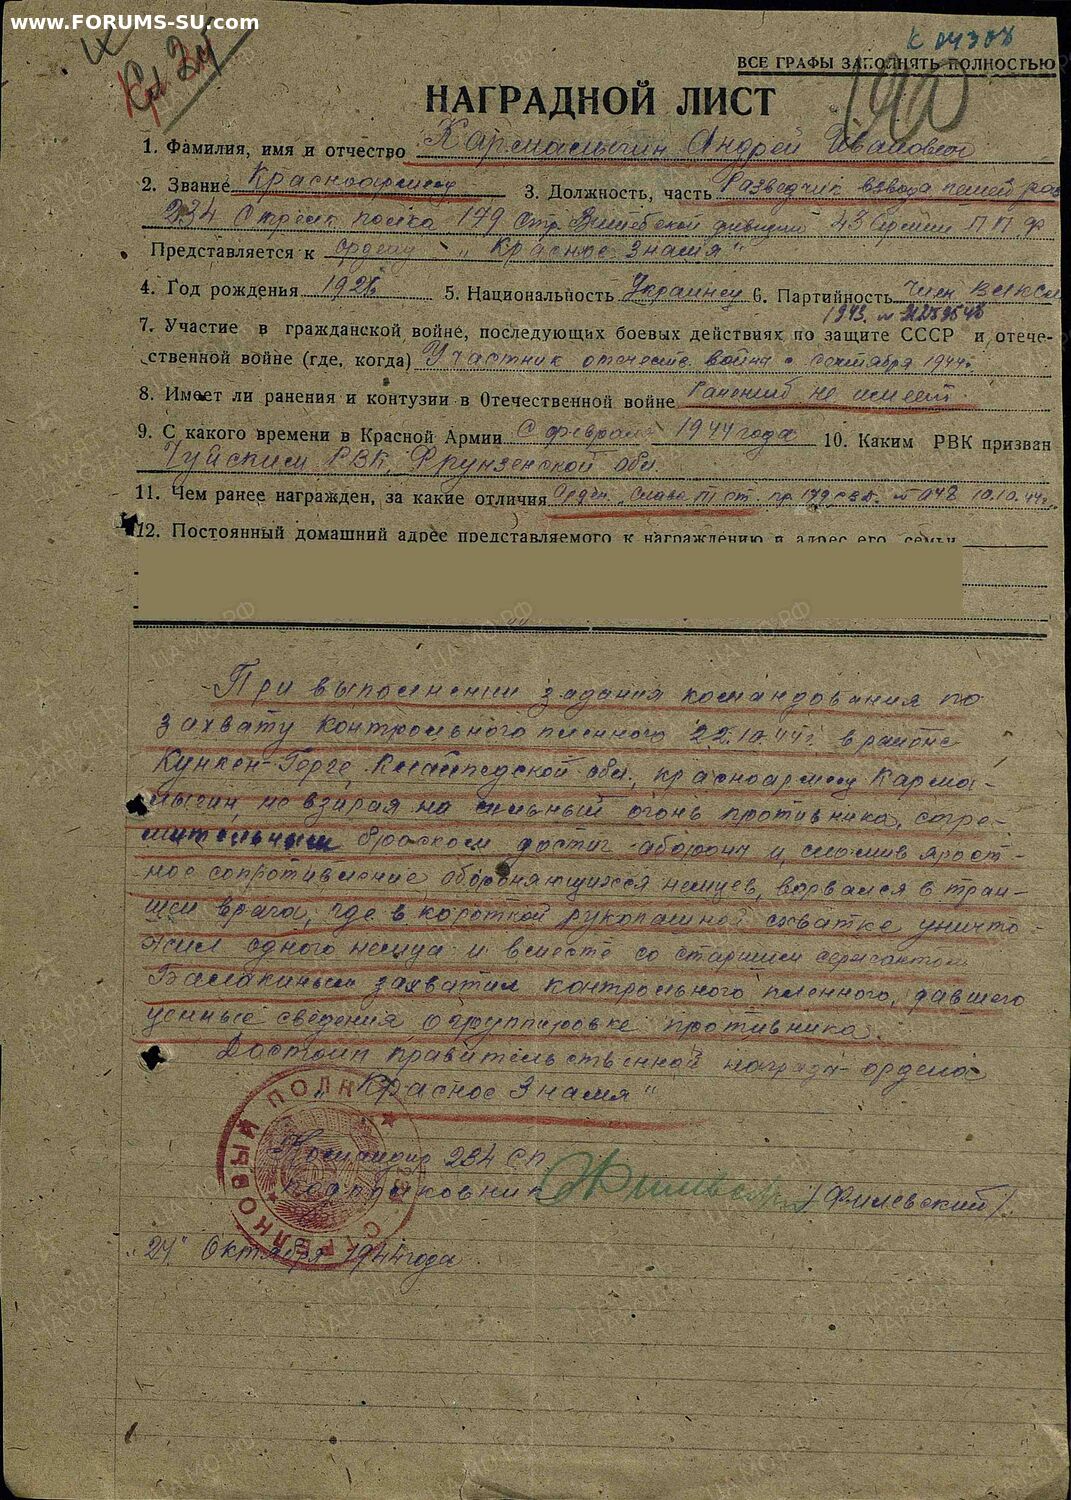 www.FORUMS-SU.com
К 04308
ВСЕ ГРАФЫ ЗАПОЛНЯТЬ ПОЛНОСТЬЮ
НАГРАДНОЙ ЛИСТ
1. Фамилия, имя и отчество Кармалыгин Андрей Иванович
2. Звание Красноармеец 3. Должность, часть Разведчик взвода пешей раз
234 Стрелк. полка 179 Стр. Витебской дивизии 43 Армии П.П.Ф.
Представляется к ордену „Красное Знамя“
4. Год рождения 1926 5. Национальность Украинец 6. Партийность Член ВЛКСМ
1943. №
7. Участие в гражданской войне, последующих боевых действиях по защите СССР и отече-
ственной войне (где, когда) Участник отечеств. войны с сентября 1944г.
8. Имеет ли ранения и контузии в Отечественной войне Ранений не имеет
9. С какого времени в Красной Армии С февраля 1944 года 10. Каким РВК призван
Чуйским РВК, Фрунзенской обл.
11. Чем ранее награжден, за какие отличия Орден „Слава III ст. пр. 179 СД. № 047 10.10.44г.
12. Постоянный домашний адрес представляемого к награждению и адрес его семьи
При выполнении задания командования по
захвату контрольного пленного 22.10.44г. в районе
Кункен-Герге, Клайпедской обл., красноармеец Карма-
лыгин, не взирая на сильный огонь противника, стре-
мительным броском достиг обороны и, сломив ярост-
ное сопротивление обороняющихся немцев, ворвался в тран-
шеи врага, где в короткой рукопашной схватке уничто-
жил одного немца и вместе со старшим сержантом
Балакиным захватил контрольного пленного, давшего
ценные сведения о группировке противника.
Достоин правительственной награды ордена
„Красное Знамя“
Командир 234 СП
подполковник /Филевский/.
СТРЕЛКОВЫЙ ПОЛК
„24“ Октября 1944 года